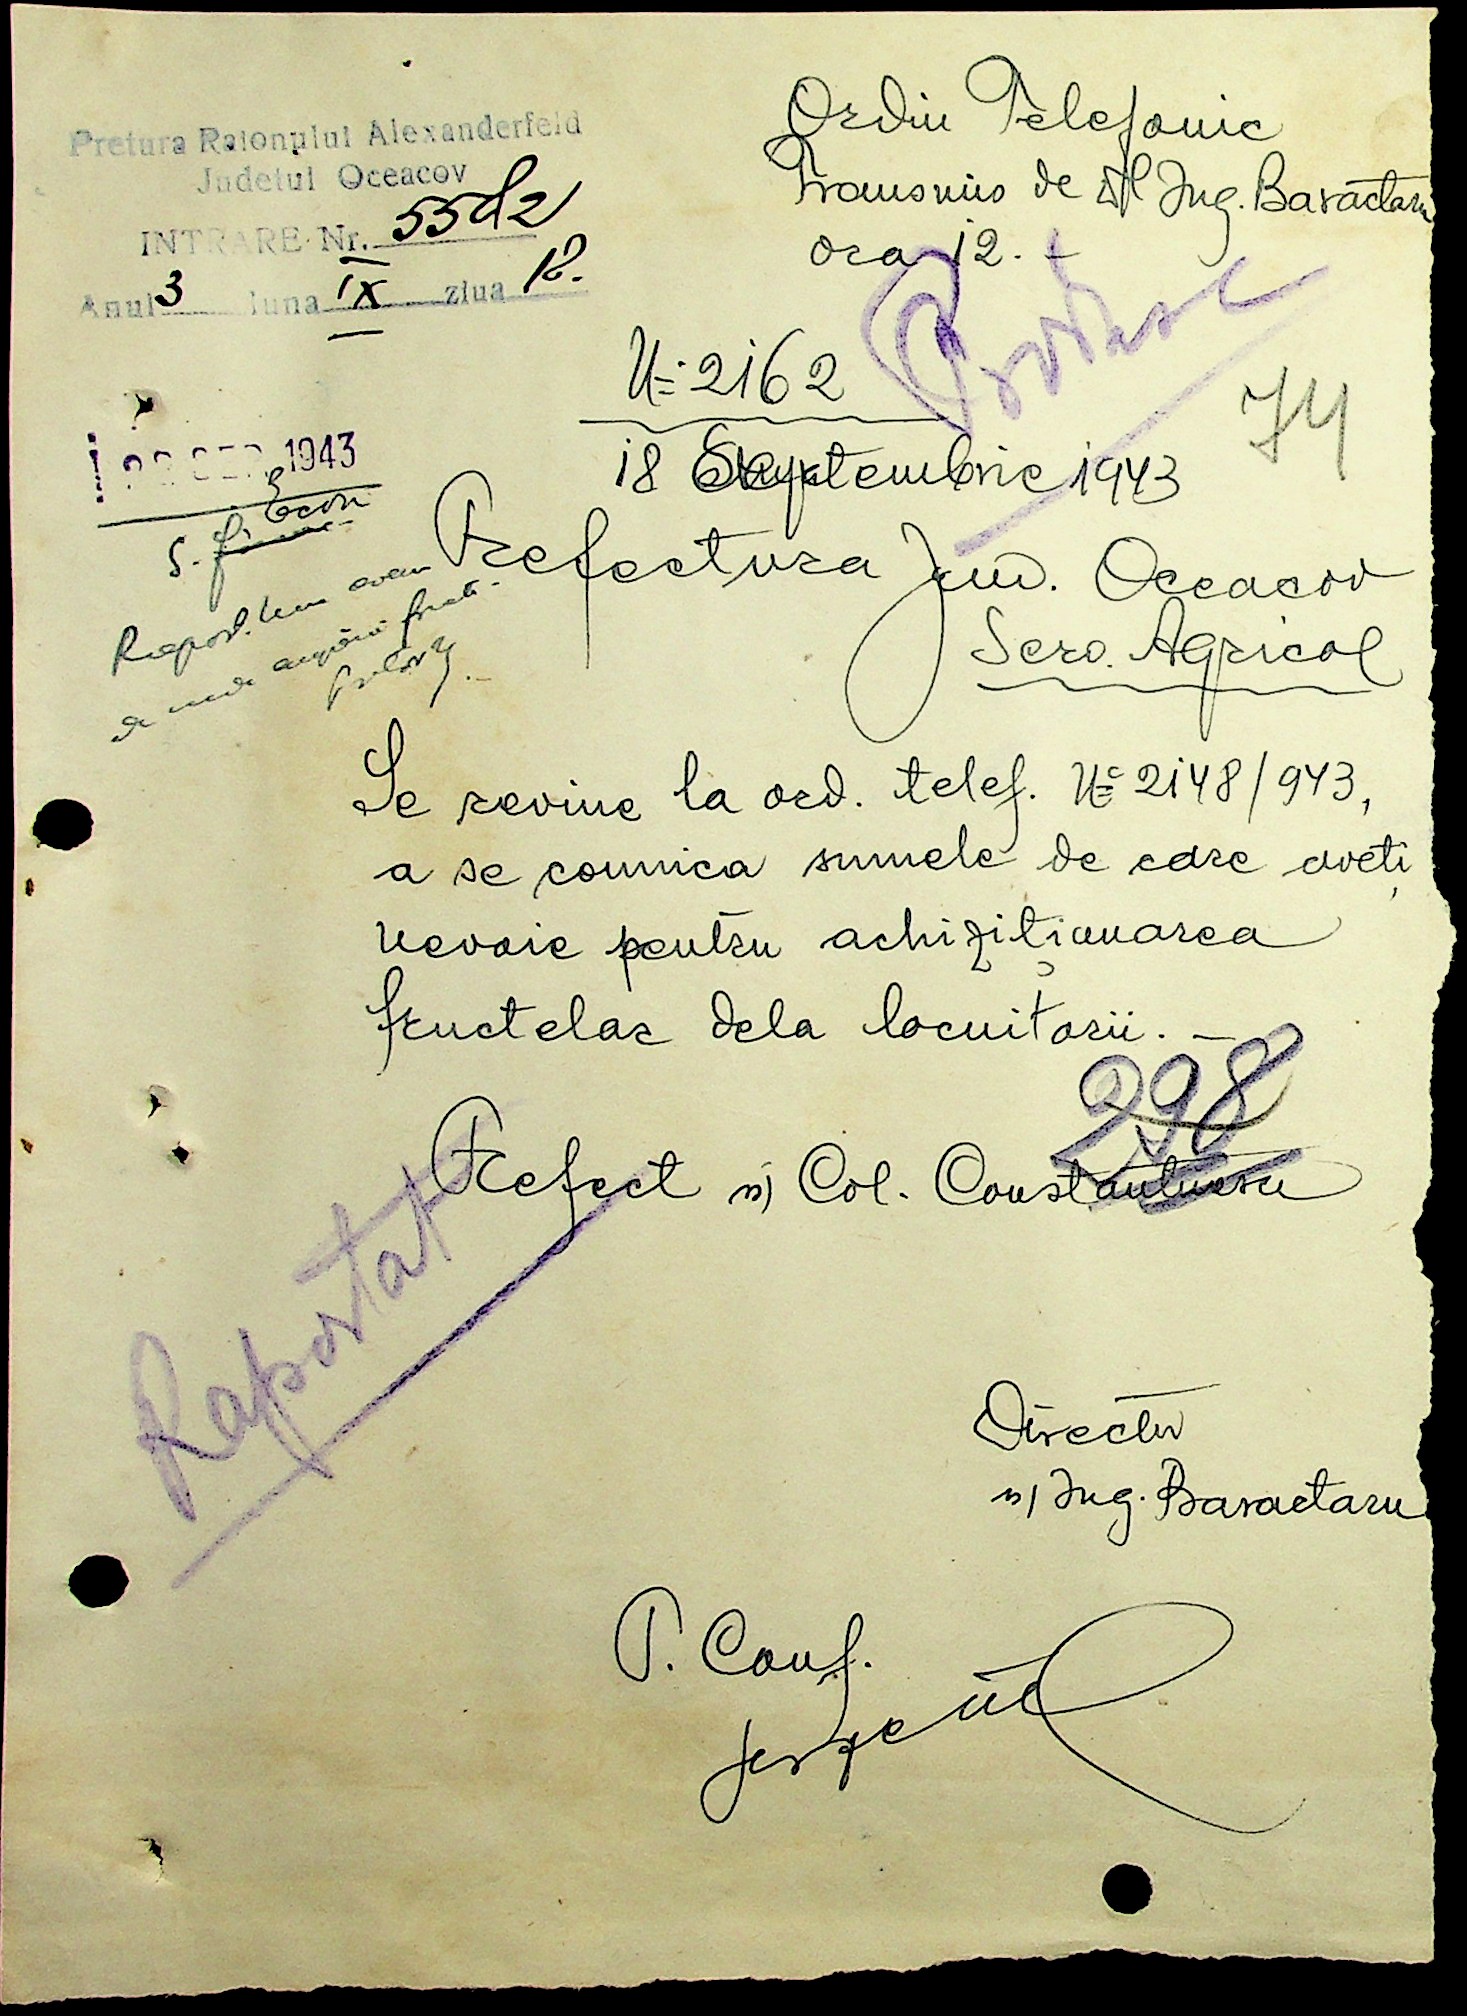 Pretura Raionului Alexanderfeld
Judetul Oceacov
INTRARE Nr. 5512
Anul 3 luna IX ziua 18.
Ordin Telefonic
Transmis de Dl Ing. Baractaru
ora 12. -
№ 2162
74
18 Septembrie 1943
1943
S. Econ
Raport.
Prefectura Jud. Oceacov
Serv. Agricol
Se revine la ord. telef. № 2148/943,
a se comnica sumele de care aveți
nevoie pentru achizițiunarea
fructelor dela locuitorii. -
298
Prefect ss) Col. Constantinescu
Raportat
Director
ss) Ing. Baractaru
P. Conf.